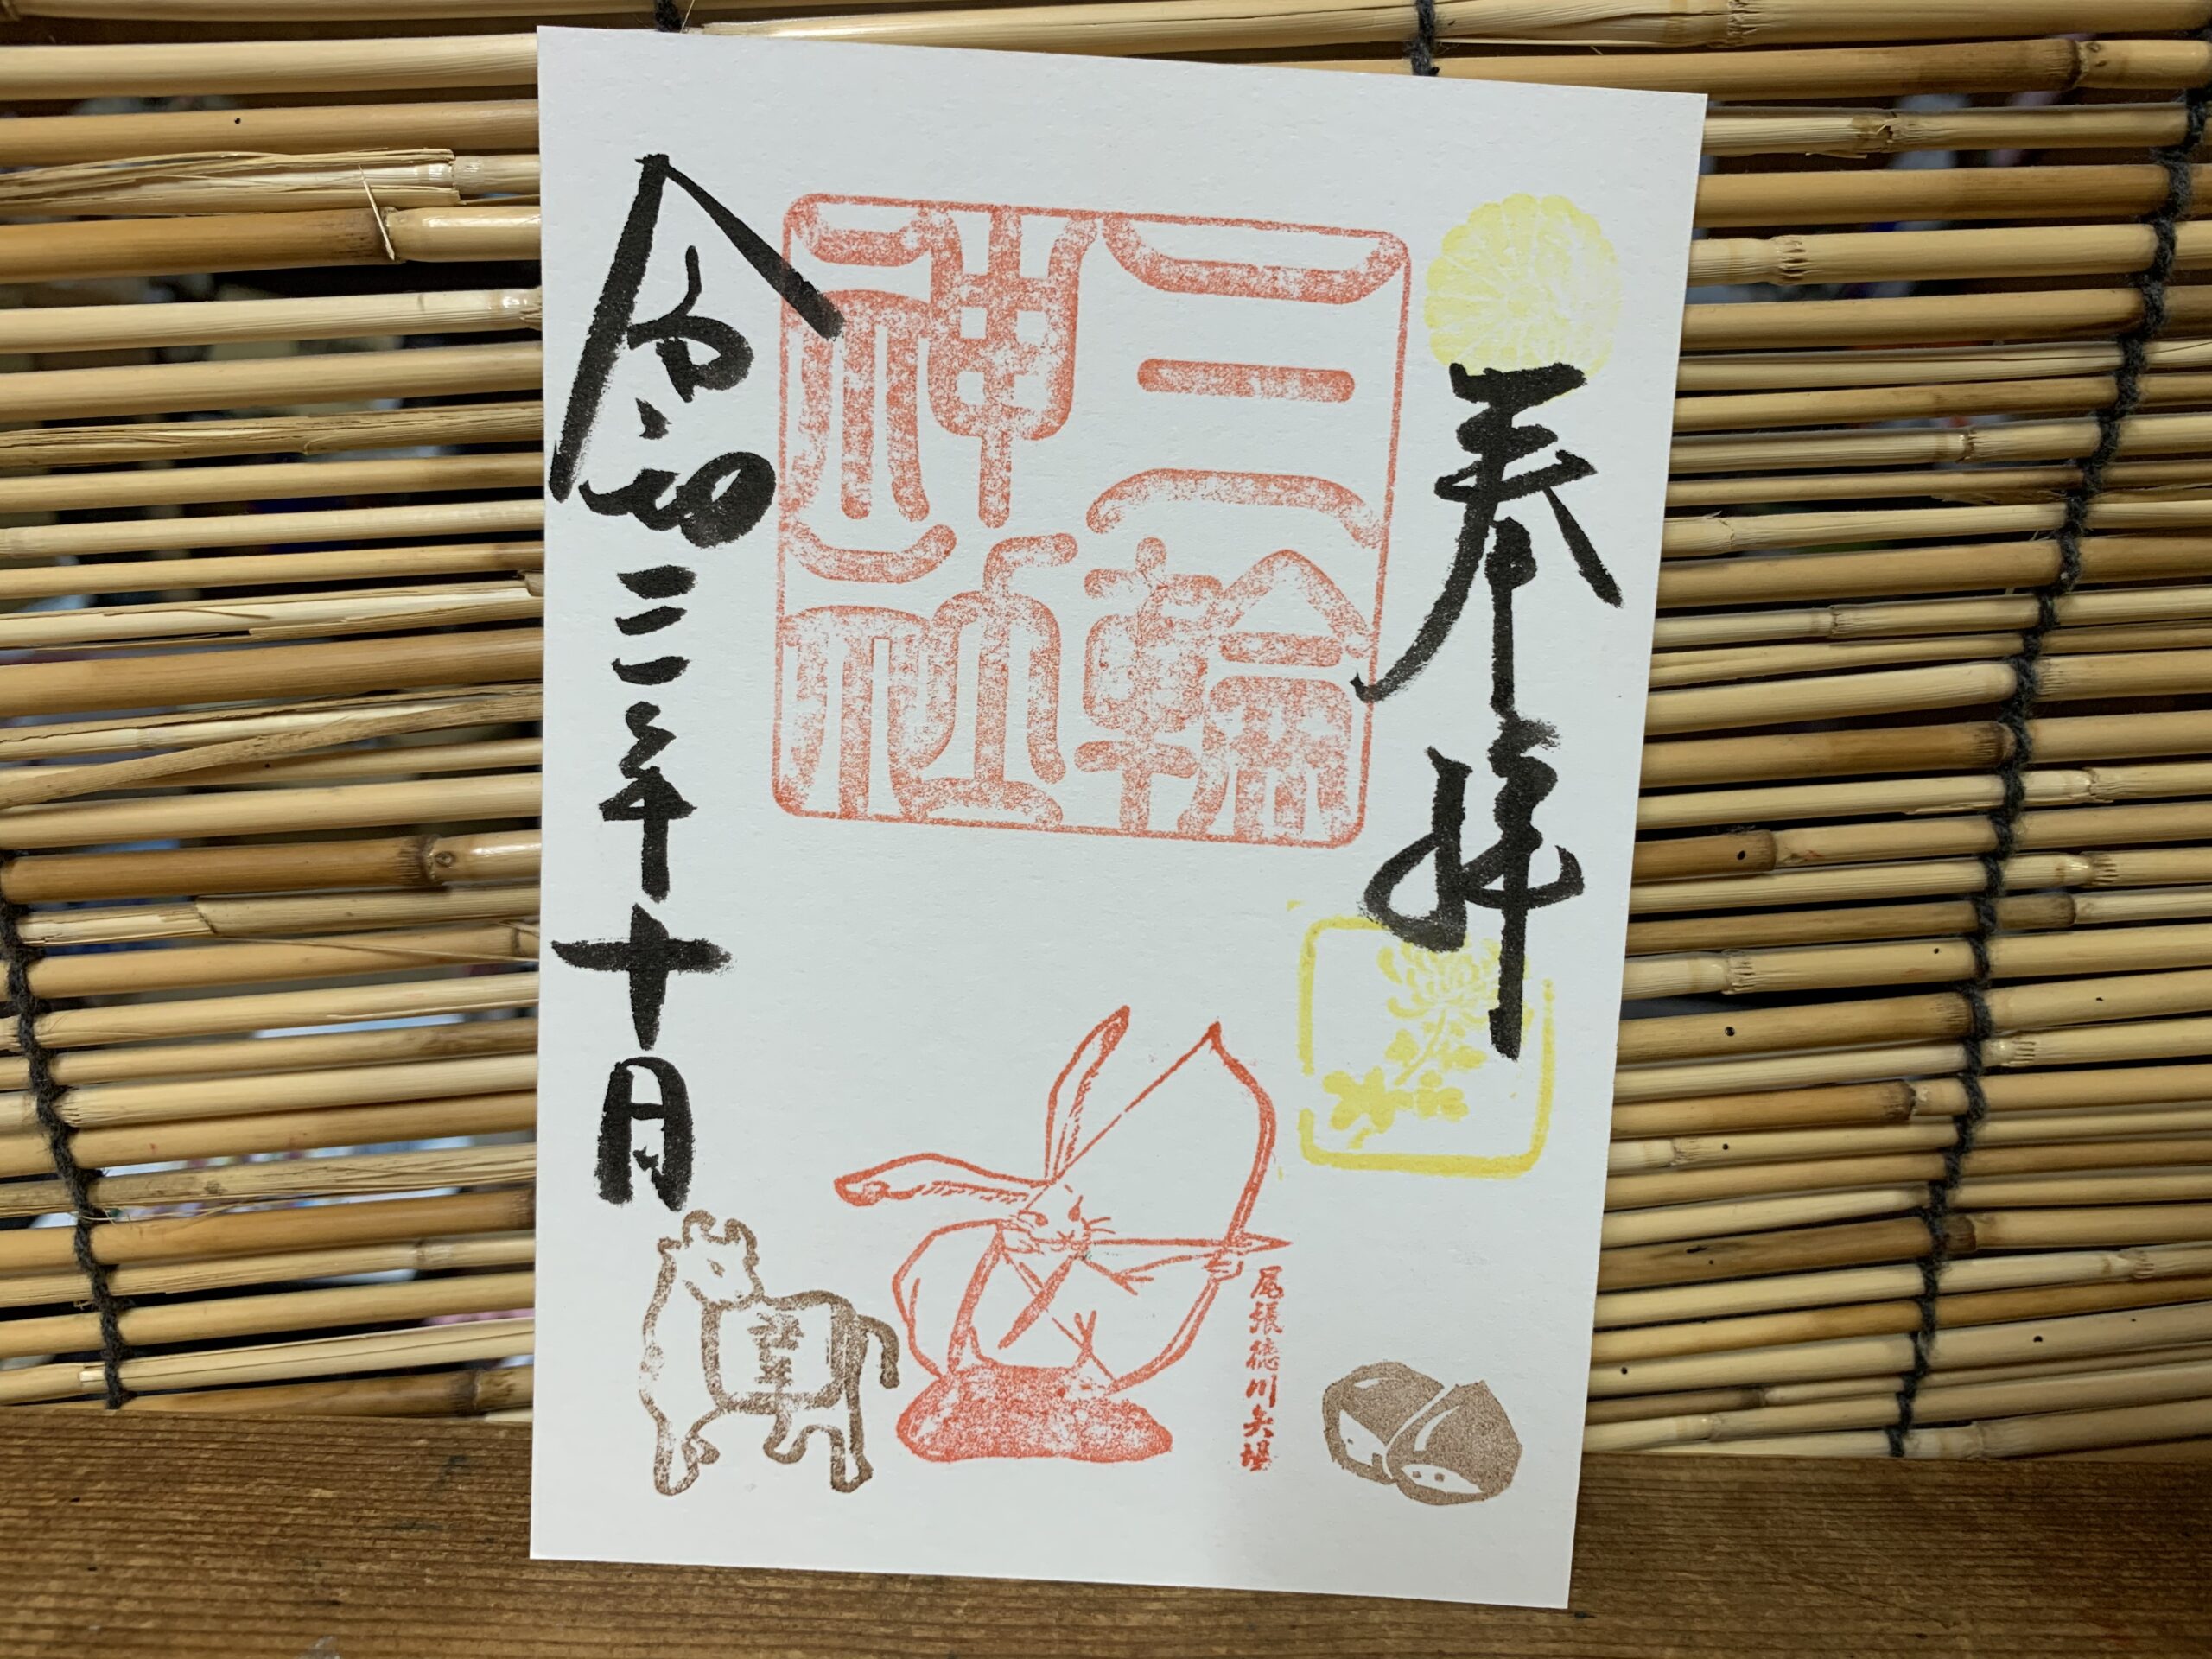 奉拝
三輪
神社
令和三年十月
尾張徳川矢場